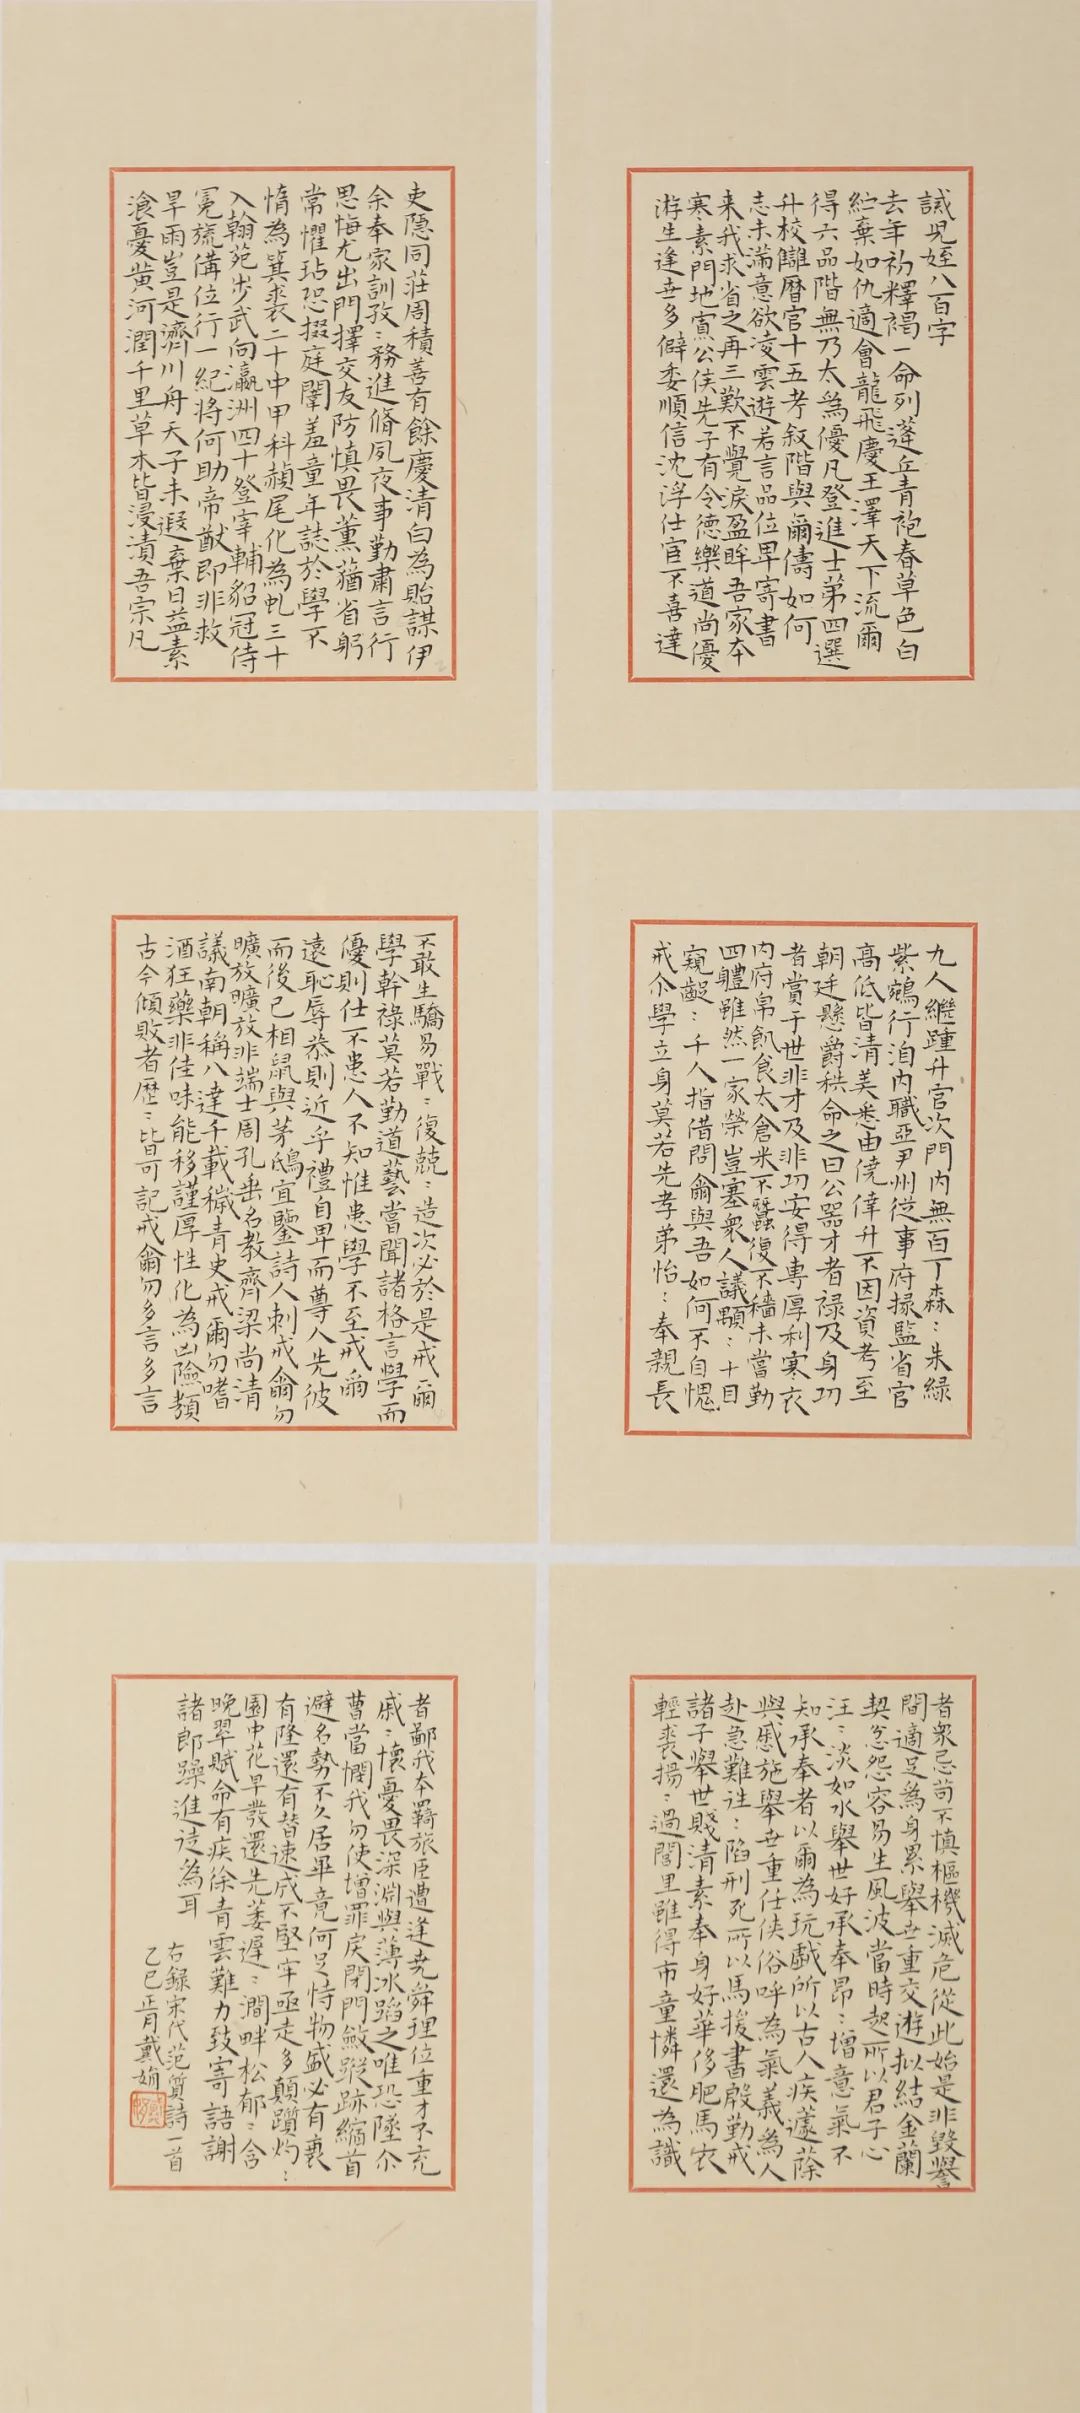 誡兒姪八百字
去年初釋褐一命列蓬丘青袍春草色白
紵棄如仇適會龍飛慶王澤天下流爾
得六品階無乃太為優凡登進士第四選
升校讎曆官十五考叙階與爾儔如何
志未滿意欲凌雲遊若言品位卑寄書
来我求省之再三歎不覺淚盈眸吾家本
寒素門地寡公侯先子有令德樂道尚優
游生逢世多僻委順信沈浮仕宦不喜達
吏隱同莊周積善有餘慶清白為貽謀伊
余奉家訓孜〻務進脩夙夜事勤肅言行
思悔尤出門擇交友防慎畏薰蕕省躬
常懼玷恐掇庭闈羞童年誌於學不
惰為箕裘二十中甲科赬尾化為虬三十
入翰苑步武向瀛洲四十登宰輔貂冠侍
冕旒備位行一紀將何助帝猷即非救
旱雨豈是濟川舟天子未遐棄日益素
飡憂黃河潤千里草木皆浸漬吾宗凡
九人繼踵升官次門內無百丁森〻朱綠
紫鵷行洎內職亞尹州從事府掾監省官
高低皆清美悉由僥倖升不因資考至
朝廷懸爵秩命之曰公器才者祿及身功
者賞于世非才及非功安得專厚利寒衣
內府帛飢食太倉米不蠶復不穡未嘗勤
四體雖然一家榮豈塞衆人議顒〻十目
窺齪〻千人指借問爾與吾如何不自愧
戒尒學立身莫若先孝弟怡〻奉親長
不敢生驕易戰〻復兢〻造次必於是戒爾
學幹祿莫若勤道藝嘗聞諸格言學而
優則仕不患人不知惟患學不至戒爾
遠恥辱恭則近乎禮自卑而尊人先彼
而後己相鼠與茅鴟宜鑒詩人刺戒爾勿
曠放曠放非端士周孔垂名教齊梁尚清
議南朝稱八達千載穢青史戒爾勿嗜
酒狂藥非佳味能移謹厚性化為凶險類
古今傾敗者歷〻皆可記戒爾勿多言多言
者衆忌苟不慎樞機滅危從此始是非毀譽
間適足為身累舉世重交遊擬結金蘭
契忿怨容易生風波當時起所以君子心
汪〻淡如水舉世好承奉昂〻增意氣不
知承奉者以爾為玩戲所以古人疾蘧蒢
與戚施舉世重任俠俗呼為氣義為人
赴急難往〻陷刑死所以馬援書殷勤戒
諸子舉世賤清素奉身好華侈肥馬衣
輕裘揚〻過閭里雖得市童憐還為識
者鄙我本羇旅臣遭逢堯舜理位重才不充
戚〻懷憂畏深淵與薄冰蹈之唯恐墜尒
曹當憫我勿使增罪戾閉門斂蹤跡縮首
避名勢名勢不久居畢竟何足恃物盛必有衰
有隆還有替速成不堅牢亟走多顛躓灼〻
園中花早發還先萎遲〻澗畔松郁〻含
晚翠賦命有疾徐青雲難力致寄語謝
諸郎躁進徒為耳
右錄宋代范質詩一首
乙巳正月戴媊